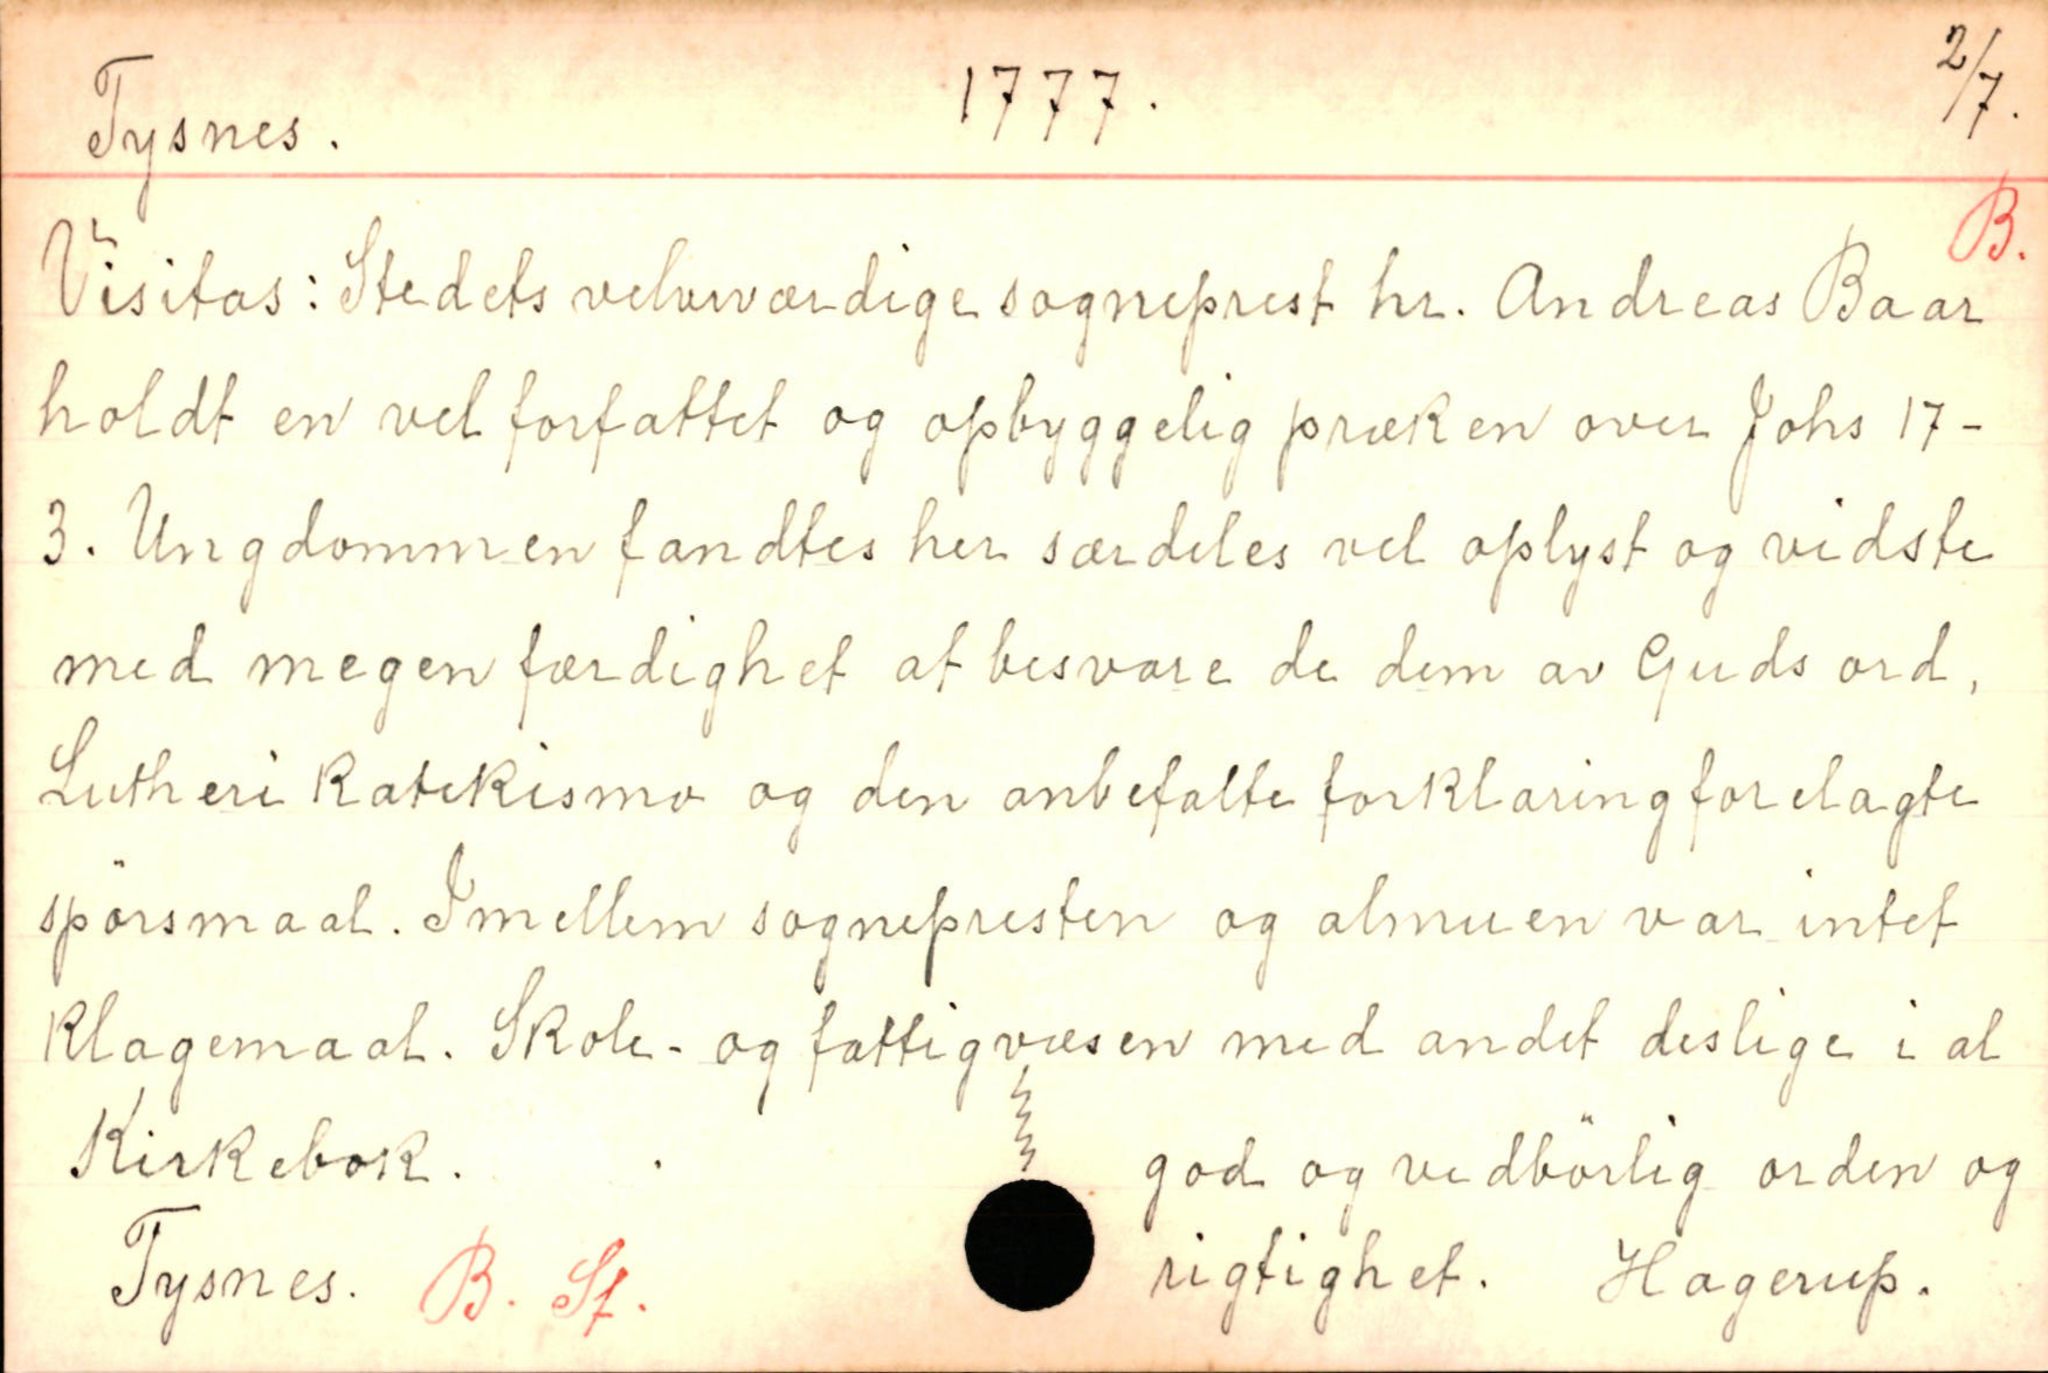 Tysnes. 1777. 2/7.
B.
Visitas: Stedets velærværdige sogneprest hr. Andreas Baar
holdt en vel forfattet og opbyggelig præken over Johs 17-
3. Ungdommen fandtes her særdeles vel oplyst og vidste
med megen færdighet at besvare de dem av Guds ord,
Lutheri Katekismo og den anbefalte forklaring forelagte
spörsmaal. Imellem sognepresten og almuen var intet
klagemaal. Skole- og fattigvæsen med andet deslige i al
Kirkebok. god og vedbörlig orden og
Tysnes. B. Sf. rigtighet. Hagerup.